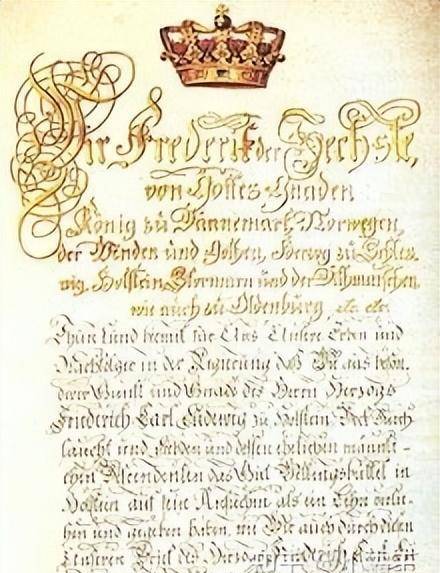 Wir Frederik der Sechste,
von Gottes Gnaden
König zu Dännemark, Norwegen,
der Wenden und Gothen, Herzog zu Schles
wig, Holstein, Stormarn und der Dithmarschen,
wie auch zu Oldenburg, etc. etc.
Thun kund hiemit für Uns Unsere Erben und
Nachfolger in der Regierung daß Wir aus beson,
derer Gunst und Gnade des Herrn Herzogs
Friederich Carl Ludewig zu Holstein Beck Durch
laucht und Liebden und dessen ehelichen männl-
chen Descendenten das Gut Wellingsbüttel in
Holstein auf sein Ansuchen als ein Lehn verlie-
hen und gegeben haben, wie Wir auch durch diesen
Unseren Brief des Herzogs Friederich Carl